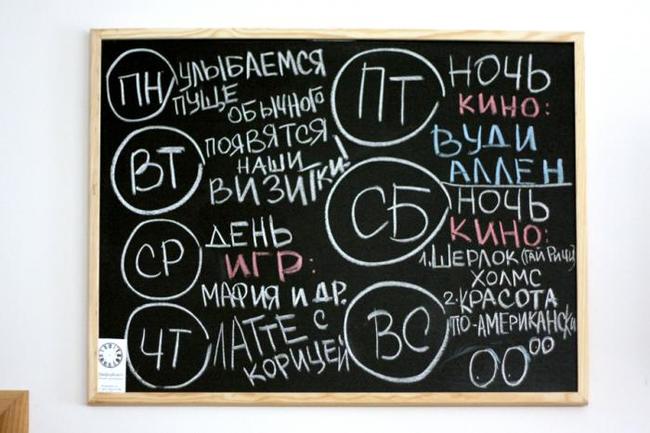 ПН
УЛЫБАЕМСЯ
ПУЩЕ
ОБЫЧНОГО
ВТ
ПОЯВЯТСЯ
НАШИ
ВИЗИТКИ!
СР
ДЕНЬ
ИГР:
МАФИЯ И ДР.
ЧТ
ЛАТТЕ С
КОРИЦЕЙ
ПТ
НОЧЬ
КИНО:
ВУДИ
АЛЛЕН
СБ
НОЧЬ
КИНО:
1. ШЕРЛОК (ГАЙ РИЧИ)
ХОЛМС
2. КРАСОТА
ПО-АМЕРИКАНСКИ
ВС
00 00